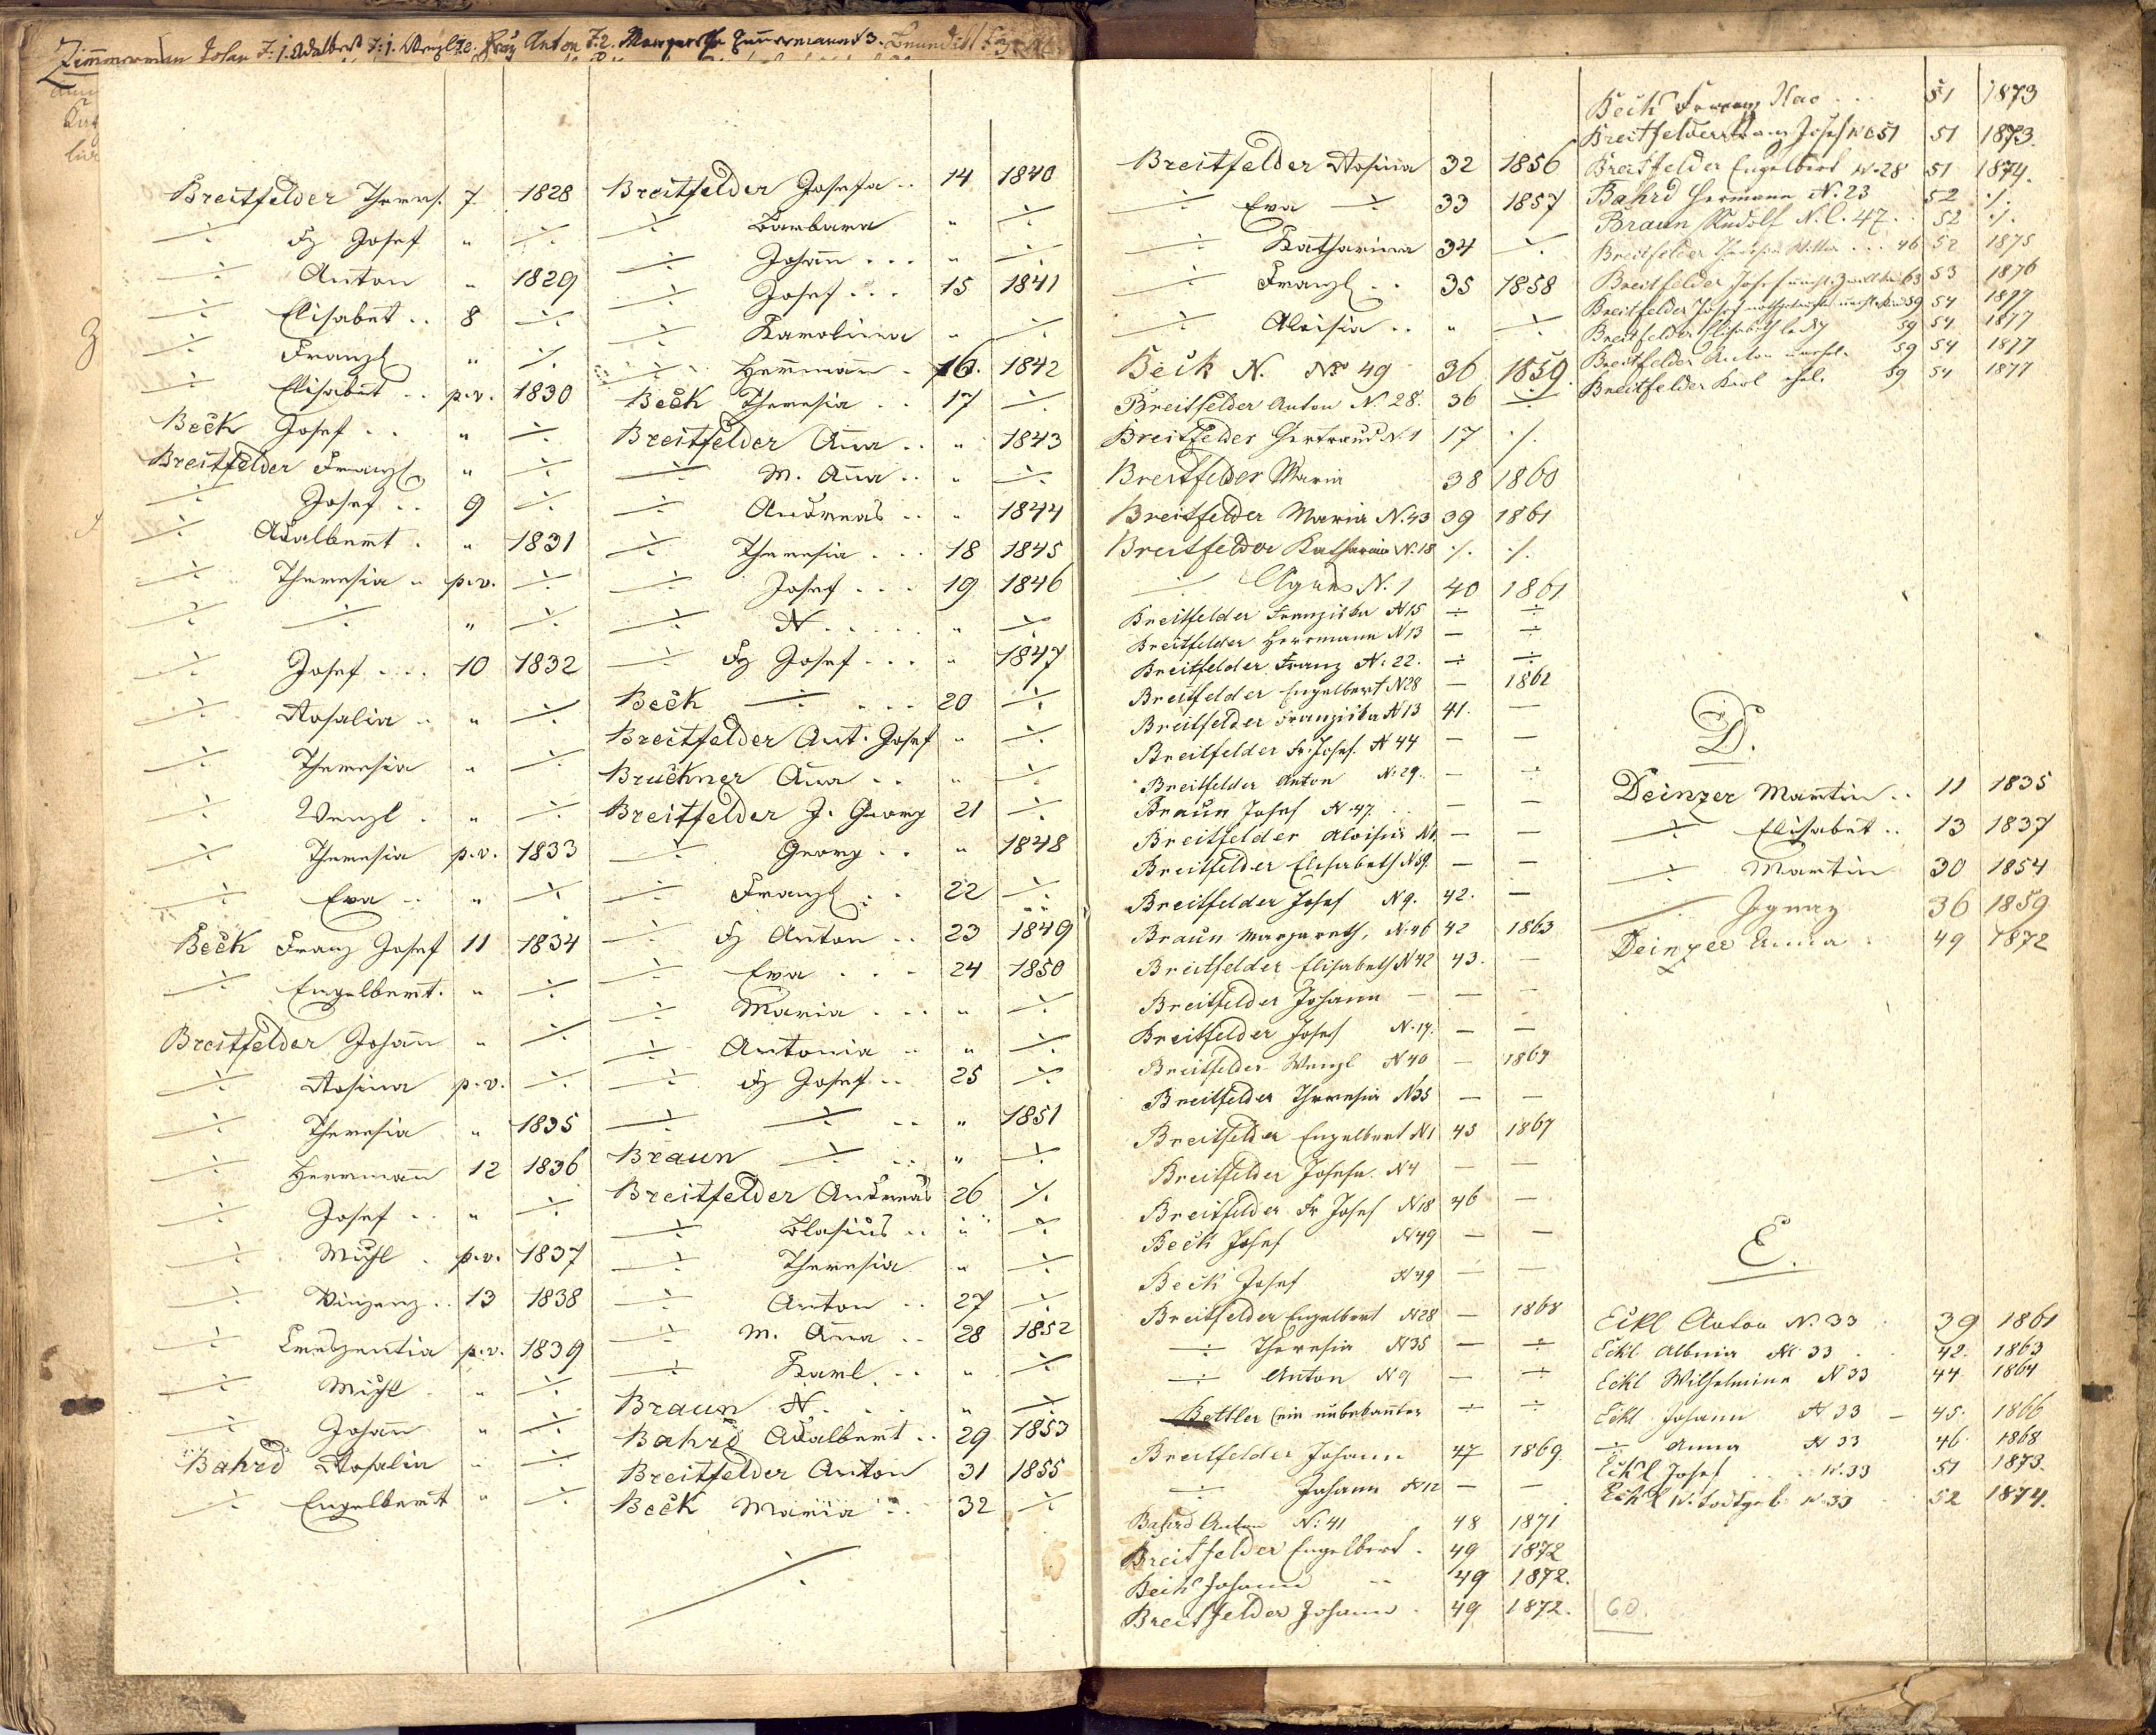 Zimmerman Johan F: 1. Adalbert F: 1. Wenzl F 2. Franz Anton F. 2. Margareta Zimmermann F 3.
Breitfelder Theres. 7 1828
÷ Fz Josef " ÷
÷ Anton " 1829
÷ Elisabet .. 8 ÷
÷ Franzl " ÷
÷ Elisabet .. p.v. 1830
Beck Josef .. " ÷
Breitfelder Franzl " ÷
÷ Josef .. 9 ÷
÷ Adalbert . " 1831
÷ Theresia .. p.v. ÷
÷ ÷ " ÷
÷ Josef ... 10 1832
÷ Rosalia .. " ÷
÷ Theresia " ÷
÷ Wenzl . " ÷
÷ Theresia p.v. 1833
÷ Eva .. " ÷
Beck Franz Josef 11 1834
÷ Engelbert. " ÷
Breitfelder Johann " ÷
÷ Rosina p.v. ÷
÷ Theresia " 1835
÷ Herrmann 12 1836
÷ Josef .. " ÷
÷ Michl . p.v. 1837
÷ Vinzenz .. 13 1838
÷ Creszentia p.v. 1839
÷ Michl . " ÷
÷ Johann " ÷
Bahrd Rosalia " ÷
÷ Engelbert " ÷
Breitfelder Josefa .. 14 1840
÷ Barbara " ÷
÷ Johann ... " ÷
÷ Josef ... 15 1841
÷ Karolina " ÷
÷ Hermann . 16. 1842
Beck Theresia .. 17 ÷
Breitfelder Anna .. " 1843
÷ M. Anna .. " ÷
÷ Andreas .. " 1844
÷ Theresia ... 18 1845
÷ Josef ... 19 1846
÷ N ..... " ÷
÷ Fz Josef ... " 1847
Beck ÷ ... 20 ÷
Breitfelder Ant. Josef " ÷
Bruckner Anna .. " ÷
Breitfelder J. Georg 21 ÷
÷ Georg .. " 1848
÷ Franzl .. 22 ÷
÷ Fz Anton .. 23 1849
÷ Eva ... 24 1850
÷ Maria ... " ÷
÷ Antonia .. " ÷
÷ Fz Josef .. 25 ÷
÷ ÷ .. " 1851
Braun ÷ .. " ÷
Breitfelder Andreas 26 ÷
÷ Blasius .. " ÷
÷ Theresia " ÷
÷ Anton .. 27 ÷
÷ M. Anna .. 28 1852
÷ Karl .. " ÷
Braun N. .. " ÷
Bahrd Adalbert .. 29 1853
Breitfelder Anton 31 1855
Beck Maria .. 32 ÷
÷
Breitfelder Rosina 32 1856
÷ Eva ÷ 33 1857
÷ Katharina 34 ÷
÷ Franzl .. 35 1858
÷ Aloisia .. " ÷
Beck N. No 49 36 1859.
Breitfelder Anton N. 28. 36 ÷
Breitfelder Gertraud N. 1 17 ÷
Breitfelder Maria 38 1860
Breitfelder Maria N. 43 39 1861
Breitfelder Katharina N. 18 ÷ ÷
÷ Agnes N. 1 40 1861
Breitfelder Franziska N 15 ÷ ÷
Breitfelder Herrmann N 13 — ÷
Breitfelder Franz N. 22. ÷ ÷
Breitfelder Engelbert N 28 — 1862
Breitfelder Franziska N 13 41. —
Breitfelder Fr. Josef. N 44 — —
Breitfelder Anton N. 29. — ÷
Braun Josef N. 47. — —
Breitfelder Aloisia N 1. — —
Breitfelder Elisabeth N 59. — —
Breitfelder Josef N 9. 42. —
Braun Margareth. N. 46 42 1863
Breitfelder Elisabeth N 42 43. —
Breitfelder Johann — — —
Breitfelder Josef N. 19. — —
Breitfelder Wenzl N 40 — 1864
Breitfelder Theresia N 35 — —
Breitfelder Engelbert N 1 45 1867
Breitfelder Josefa. N 4 — —
Breitfelder Fr Josef N 18 46 —
Beck Josef N 49 — —
Beck Josef N 49 — —
Breitfelder Engelbert N 28 — 1868
÷ Theresia N 35 — ÷
÷ Anton N 9 — ÷
Bettler (ein unbekannter ÷ ÷
Breitfelder Johann 47 1869.
÷ Johann N 12 — —
Bahrd Anton N: 41 48 1871
Breitfelder Engelbert . 49 1872
Beck Johann .. 49 1872.
Breitfelder Johann . 49 1872.
Beck Franz 51 1873
Breitfelder Franz Josef N. C. 51 51 1873.
Breitfelder Engelbert N. 28 51 1874.
Bahrd Hermann N. 23 52 ÷
Braun Rudolf N. C. 47. 52 ÷
Breitfelder Theresia 46 52 1875
Breitfelder Josef 63 53 1876
Breitfelder Josef 59 54 1877
Breitfelder Elisabeth ledig 59 54 1877
Breitfelder Anton 59 54 1877
Breitfelder Karl ehel. 59 54 1877
D.
Deinzer Martin .. 11 1835
÷ Elisabet .. 13 1837
÷ Martin 30 1854
÷ Ignaz 36 1859
Deinzer Anna . 49 1872
E.
Eckl Anton N. 33 39 1861
Eckl Albina N. 33 . 42. 1863
Eckl Wilhelmine N 33 44 1864
Eckl Johann N 33 — 45. 1866
÷ Anna N 33 46 1868
Eckl Josef N. 33 51 1873.
Eckl N. todtgeb. N. 33 52 1874.
60.